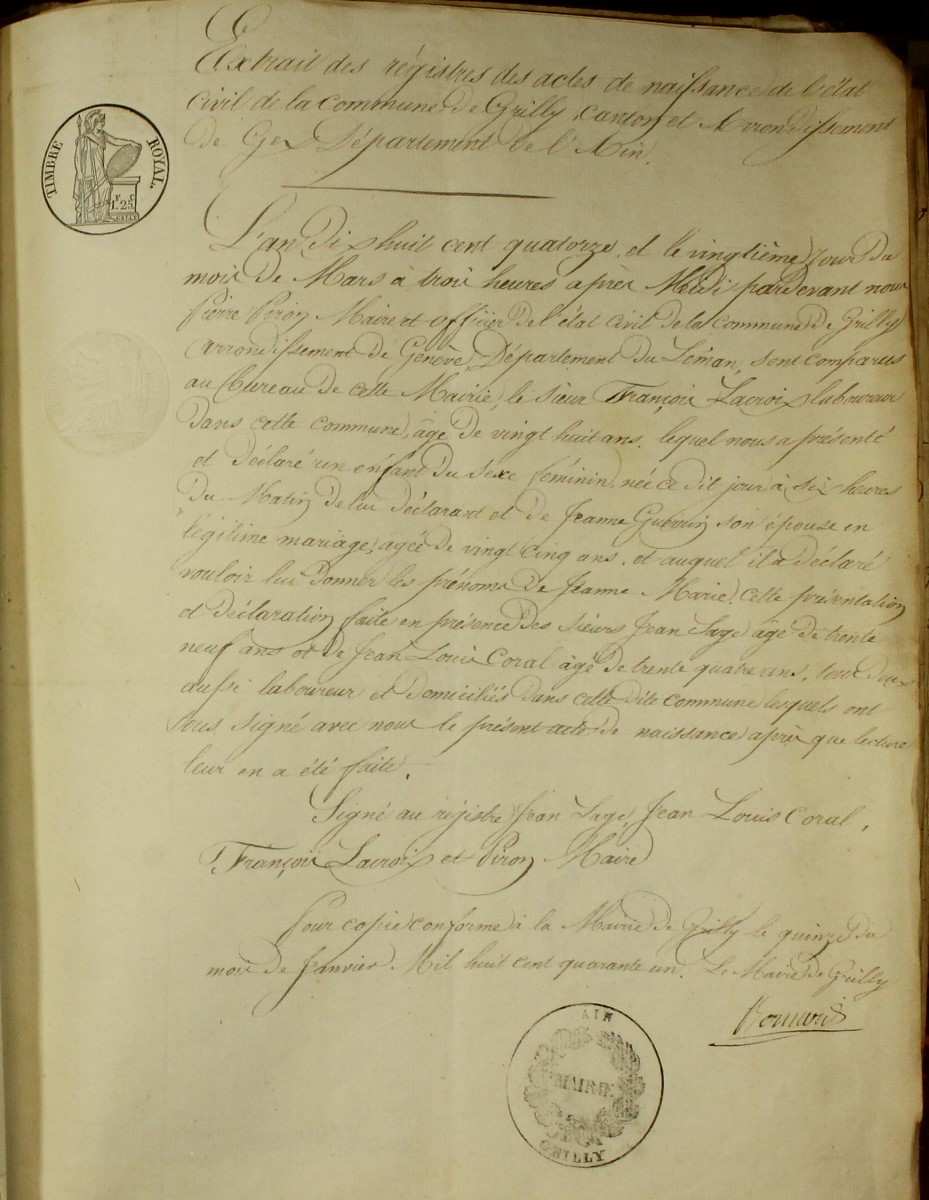 Extrait des régistres des actes de naissance de l'état
civil de la commune de Grilly, canton et Arrondissement
de Gex Département de l'Ain.
TIMBRE ROYAL
1F 25C
L'an Dix huit cent quatorze, et le vingtième jour du
mois de Mars à trois heures après Midi pardevant nous
Pierre Piron Maire et officier de l'état civil de la commune de Grilly
arrondissement de Genève, Département du Léman, sont comparus
au Bureau de cette Mairie, le sieur François Lacroix laboureur
dans cette commune, âgé de vingt huit ans, lequel nous a présenté
et déclaré un enfant du sexe féminin, née ce dit jour à six heures
du Matin de lui déclarant et de Jeanne son épouse en
légitime mariage, agée de vingt cinq ans, et auquel il a déclaré
vouloir lui donner les prénoms de Jeanne Marie. cette présentation
et déclaration faite en présence des sieurs Jean Sage âgé de trente
neuf ans et de Jean Louis Coral âgé de trente quatre ans, tous deux
aussi laboureur et domiciliés dans cette dite commune lesquels ont
signé avec nous le présent acte de naissance après que lecture
leur en a été faite.
Signé au régistre Jean Sage, Jean Louis Coral,
François Lacroix et Piron Maire
Pour copie conforme à la Mairie de Grilly le quinze du
mois de Janvier Mil huit cent quarante un. Le Maire de Grilly
AIN
MAIRIE
GRILLY